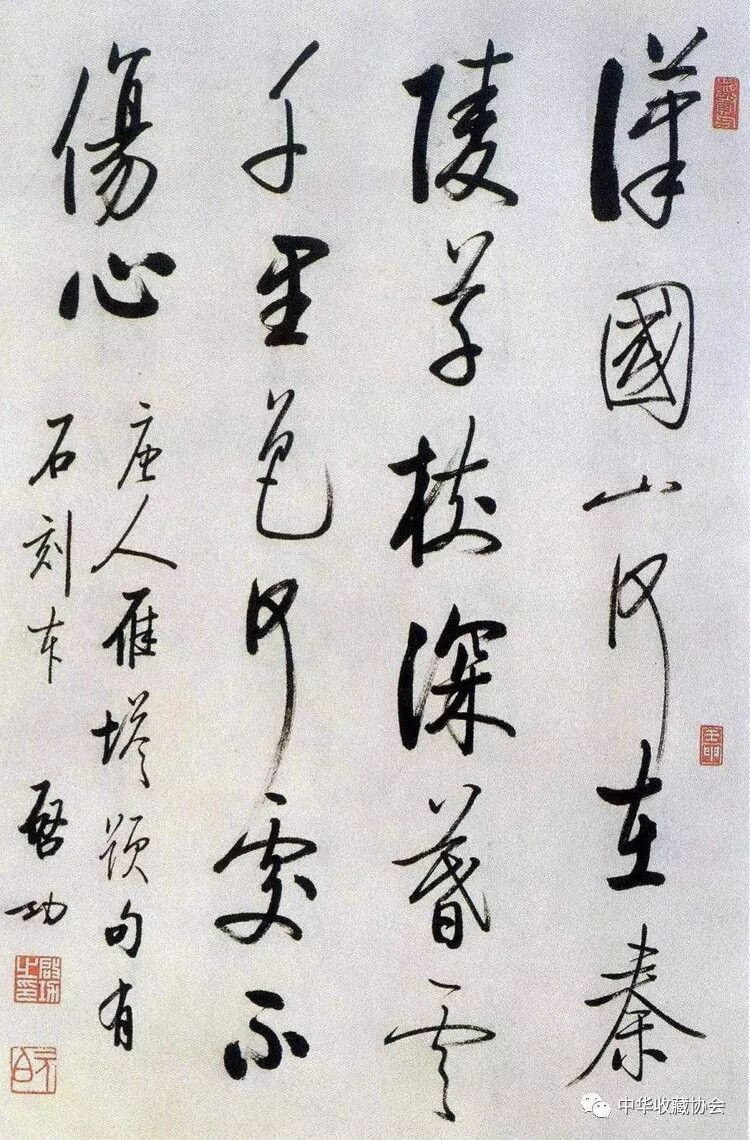 漢國山河在秦
陵草樹深暮雲
千里色何處不
傷心
唐人雁塔題句有
石刻本 啓功
啟功之印
元白
中华收藏协会